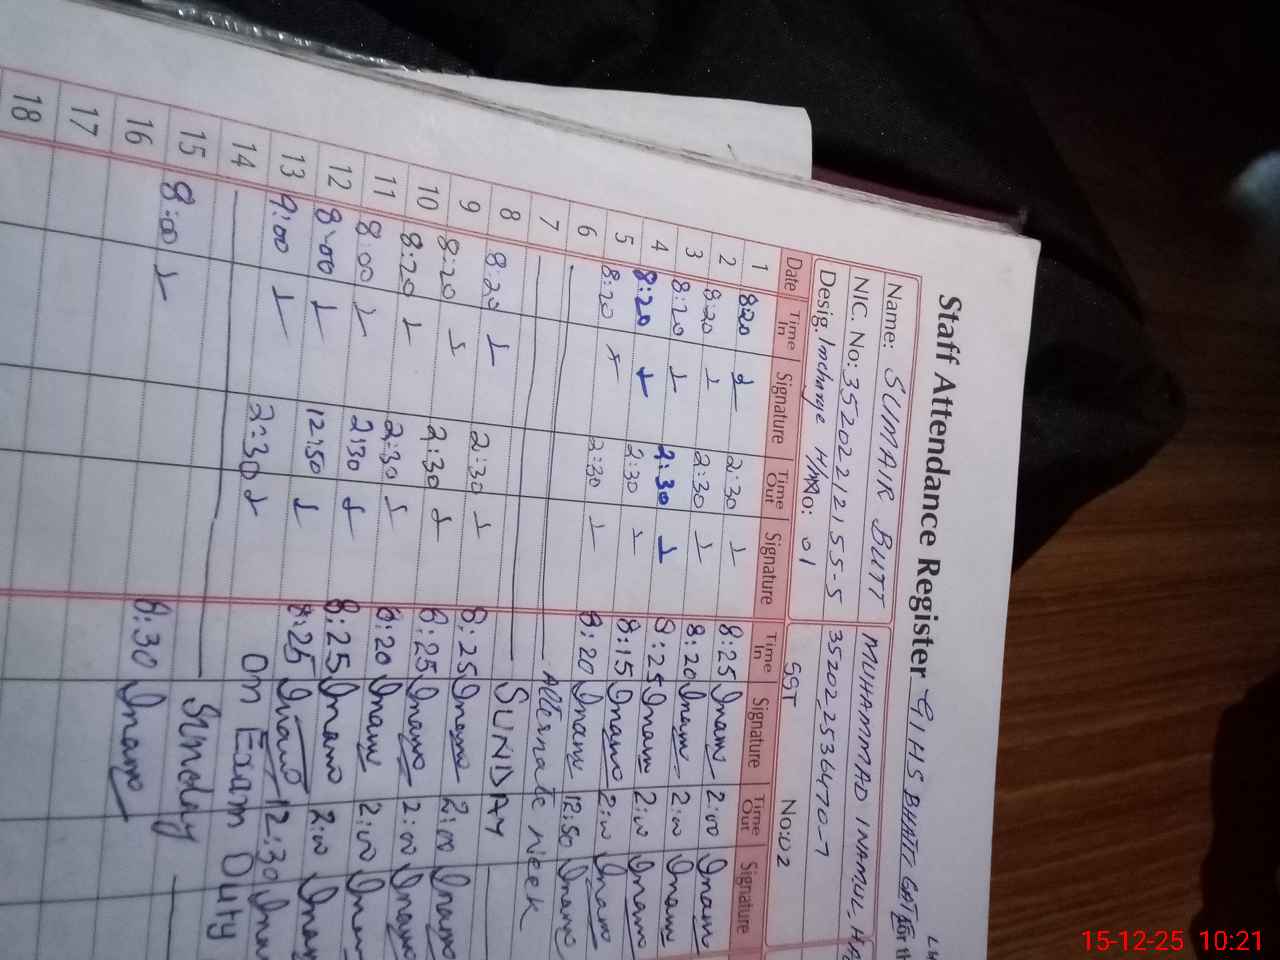 Staff Attendance Register GHS BHATI GATE for th
Name: SUMAIR BUTT MUHAMMAD INAMUL HA
NIC. No: 352022121155-5 35202_2536470-7
Desig. Incharge H/M No: 01 SST No: 02
Date Time In Signature Time Out Signature Time In Signature Time Out Signature
1 8:20 2:30 8:25 Inam 2:00 Inam
2 8:20 2:30 8:20 Inam 2:00 Inam
3 8:20 2:30 8:25 Inam 2:00 Inam
4 8:20 2:30 8:15 Inam 2:00 Inam
5 8:20 2:30 8:20 Inam 12:50 Inam
6 Alternate week
7 SUNDAY
8 8:20 2:30 8:25 Inam 2:00 Inam
9 8:20 2:30 8:25 Inam 2:00 Inam
10 8:20 2:30 8:20 Inam 2:00 Inam
11 8:00 2:30 8:25 Inam 2:00 Inam
12 8:00 12:50 8:25 Inam 12:30 Inam
13 9:00 2:30 On Exam Duty
14 Sunday
15 8:00 8:30 Inam
16
17
18
15-12-25 10:21